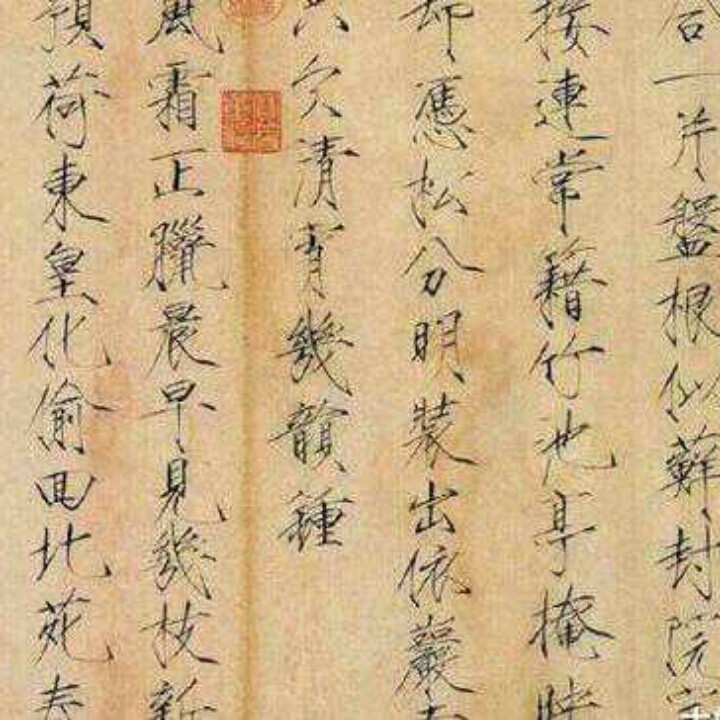 合一片盤根似蘚封院
接連常籍竹池亭掩映
却憑松分明裝出依巖
只欠清宵幾韻鍾
風霜正臘晨早見幾枝新
預荷東皇化偷回北苑春